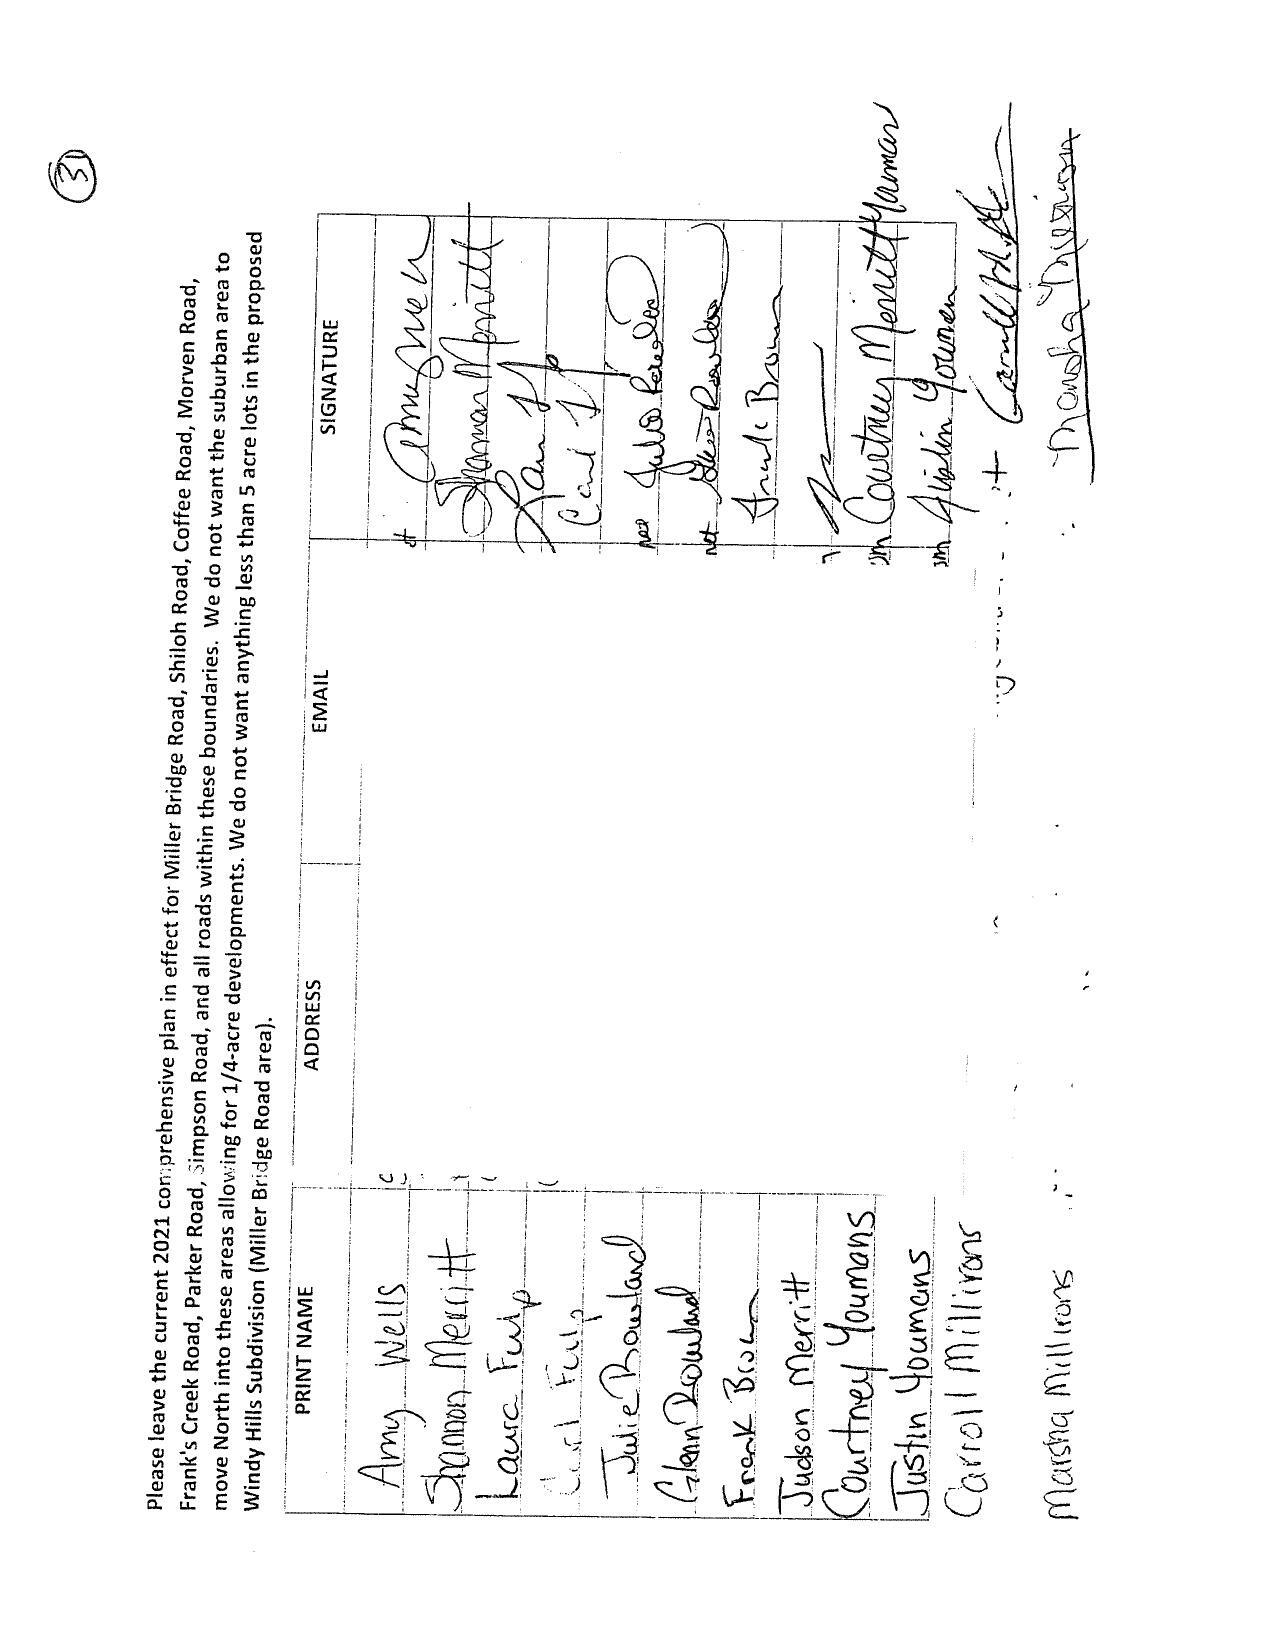 31
Please leave the current 2021 comprehensive plan in effect for Miller Bridge Road, Shiloh Road, Coffee Road, Morven Road,
Frank's Creek Road, Parker Road, Simpson Road, and all roads within these boundaries. We do not want the suburban area to
move North into these areas allowing for 1/4-acre developments. We do not want anything less than 5 acre lots in the proposed
Windy Hills Subdivision (Miller Bridge Road area).
PRINT NAME ADDRESS EMAIL SIGNATURE
Amy Wells
Shannon Merritt Shannon Merritt
Laura Fulp
Carl Fulp Carl
Julie Rowland net Julie Rowland
Glenn Rowland net Glenn Rowland
Frank Brown Frank Brown
Judson Merritt
Courtney Youmans om Courtney Merritt Youmans
Justin Youmans om Justin Youmans
Carroll Millirons
Marsha Millirons Marsha Millirons